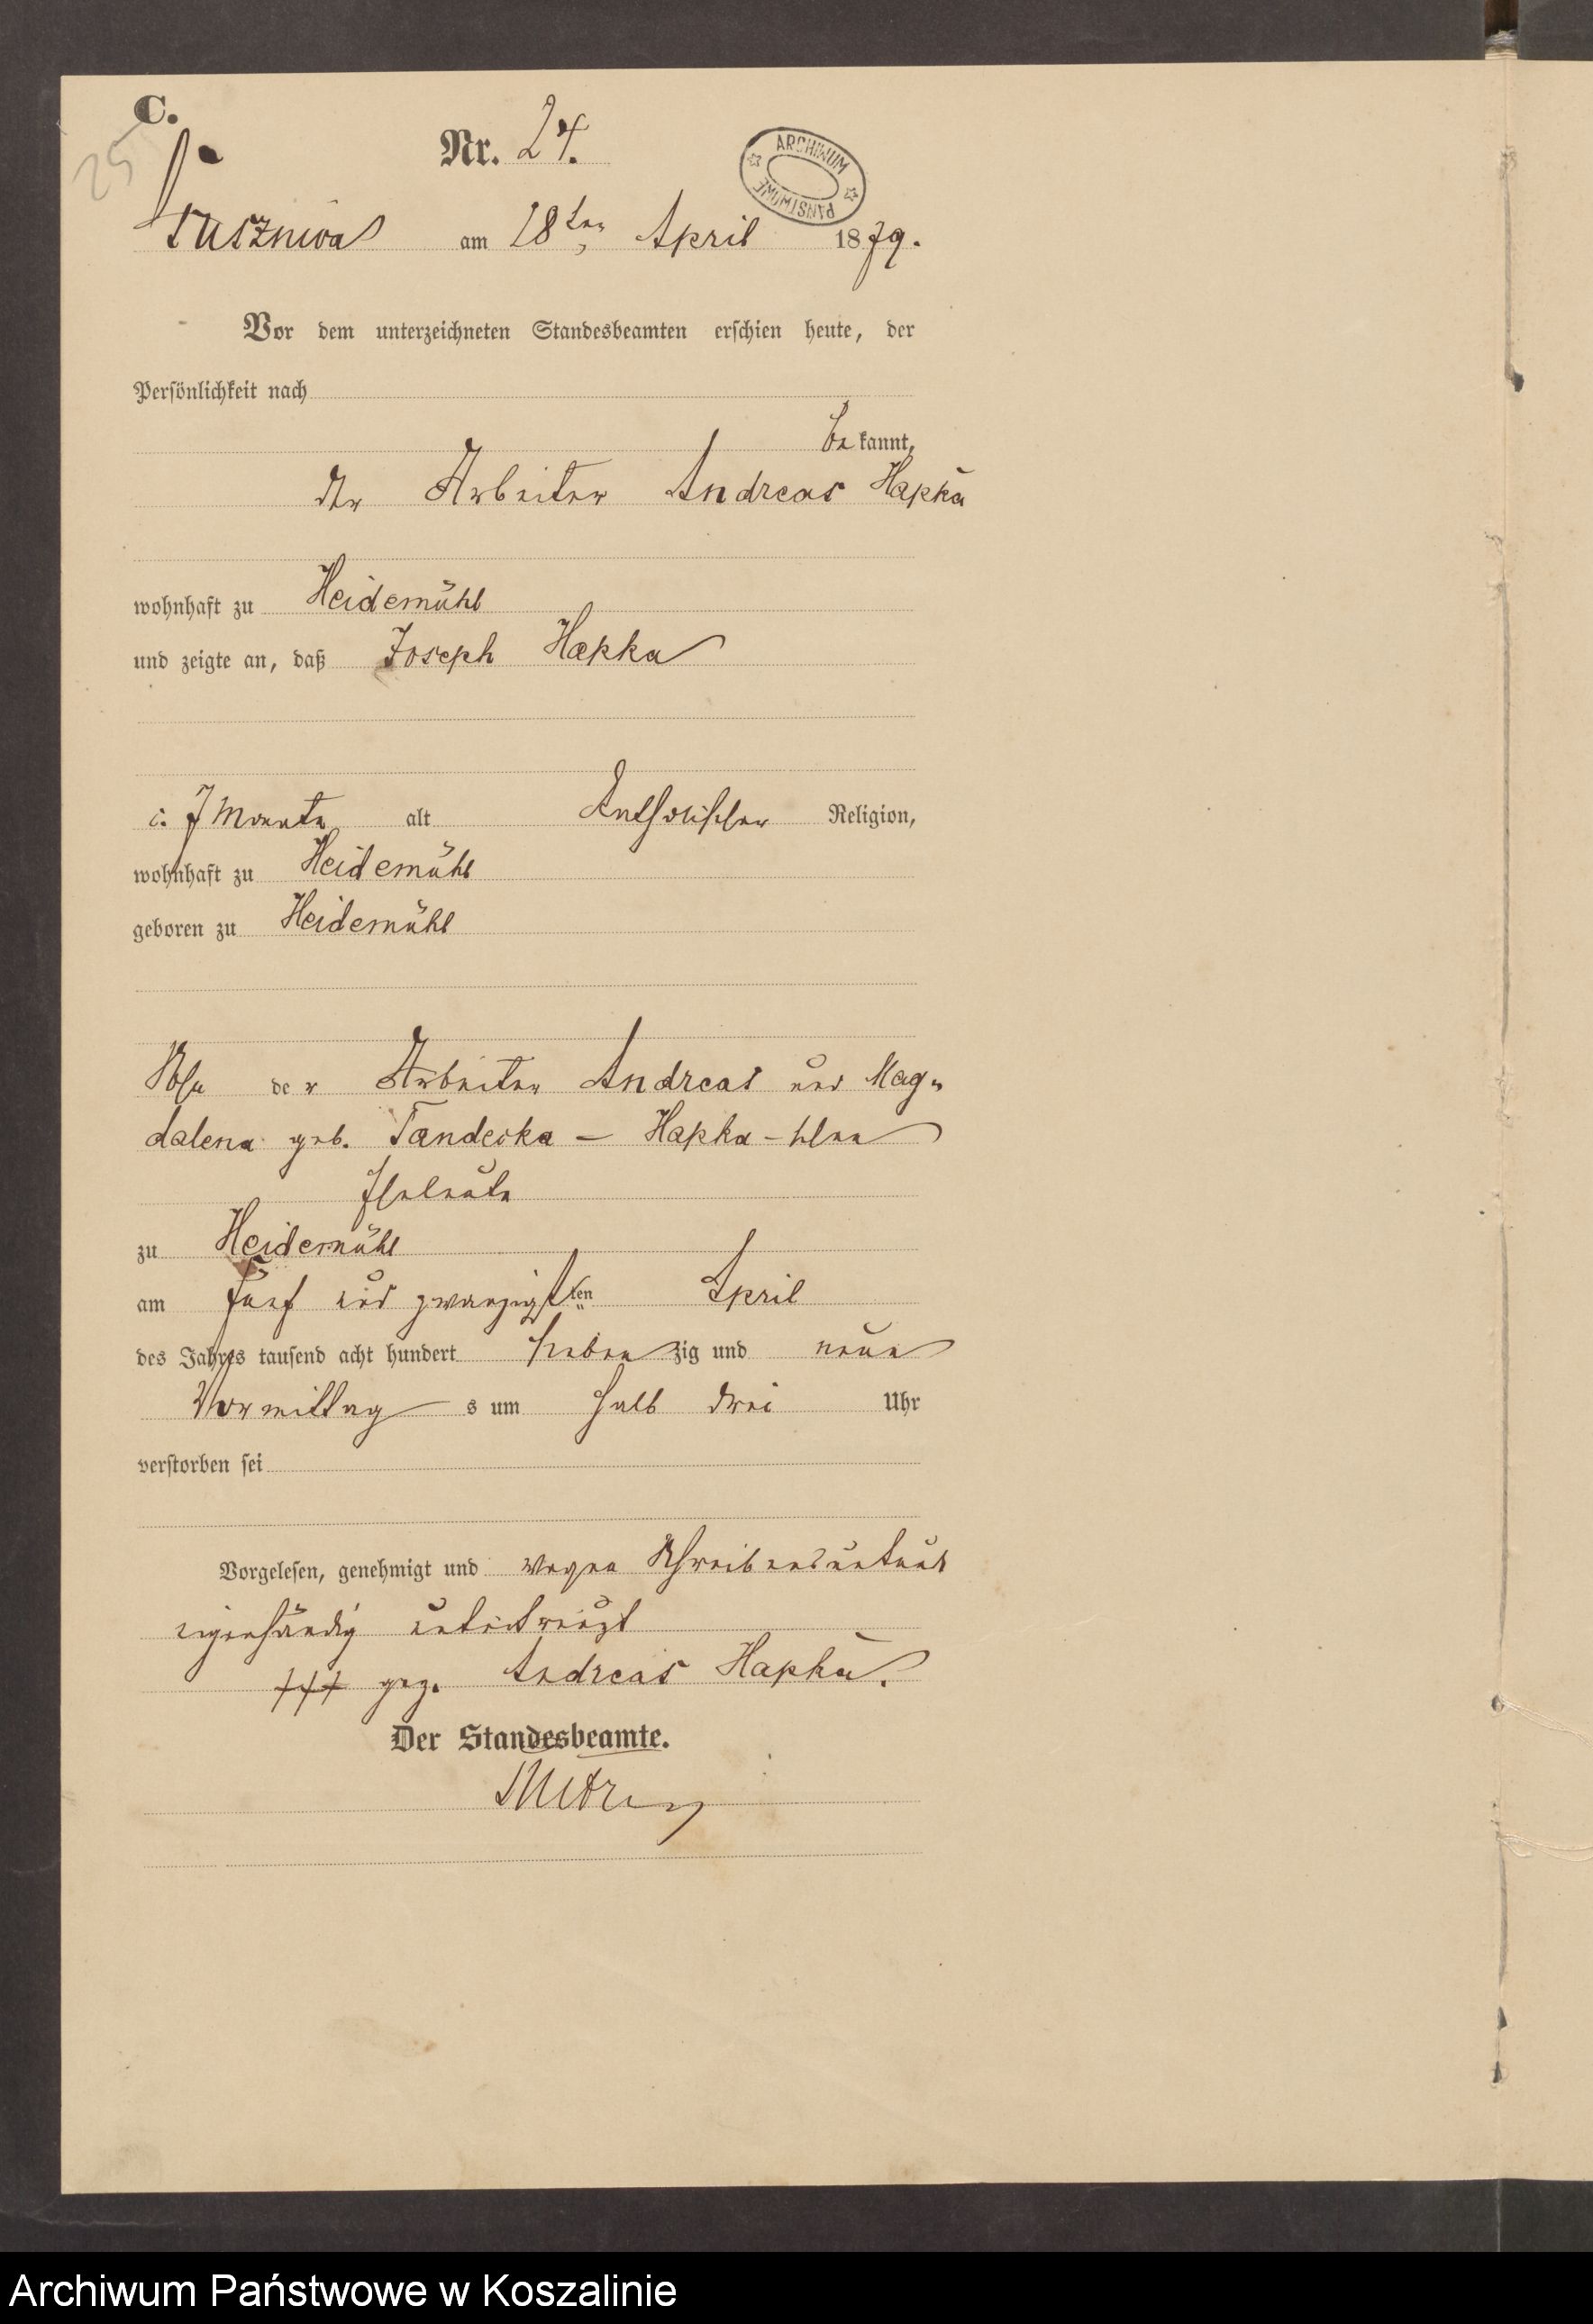 C.
25
Nr. 24.
ARCHIWUM PAŃSTWOWE
am 28ten April 1879.
Vor dem unterzeichneten Standesbeamten erschien heute, der
Persönlichkeit nach
be kannt,
der Arbeiter Andreas Hapka
wohnhaft zu Heidemühl
und zeigte an, daß Joseph Hapka
7 Monate alt katholischer Religion,
wohnhaft zu Heidemühl
geboren zu Heidemühl
Sohn der Arbeiter Andreas und Mag-
dalena geb. Tandecka – Hapka-schen
Eheleute
zu Heidemühl
am fünf und zwanzigsten April
des Jahres tausend acht hundert sieben zig und neun
Vormittag s um halb drei Uhr
verstorben sei
Vorgelesen, genehmigt und wegen Schreibensunkunde
eigenhändig unterkreuzt
+++ gez. Andreas Hapka.
Der Standesbeamte.
Archiwum Państwowe w Koszalinie